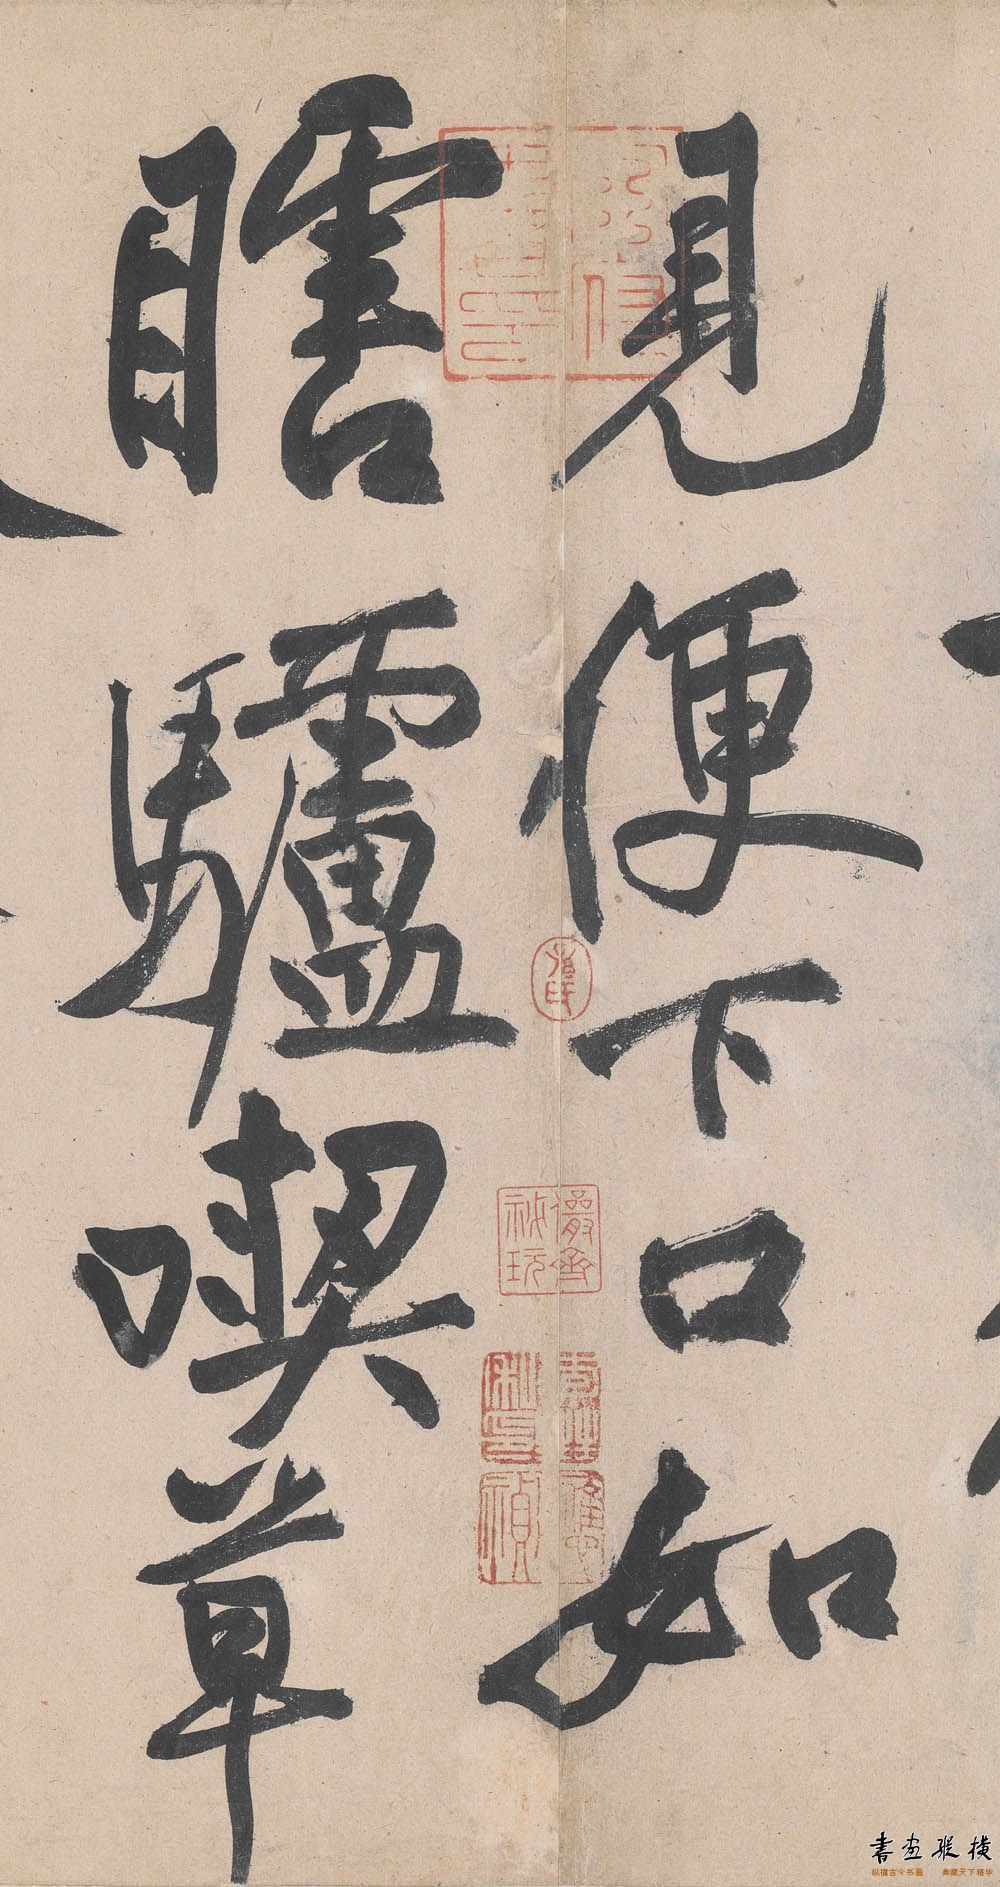 見便下口如
瞎驢喫草
書畫縱橫
纵横古今书画 典藏天下精华